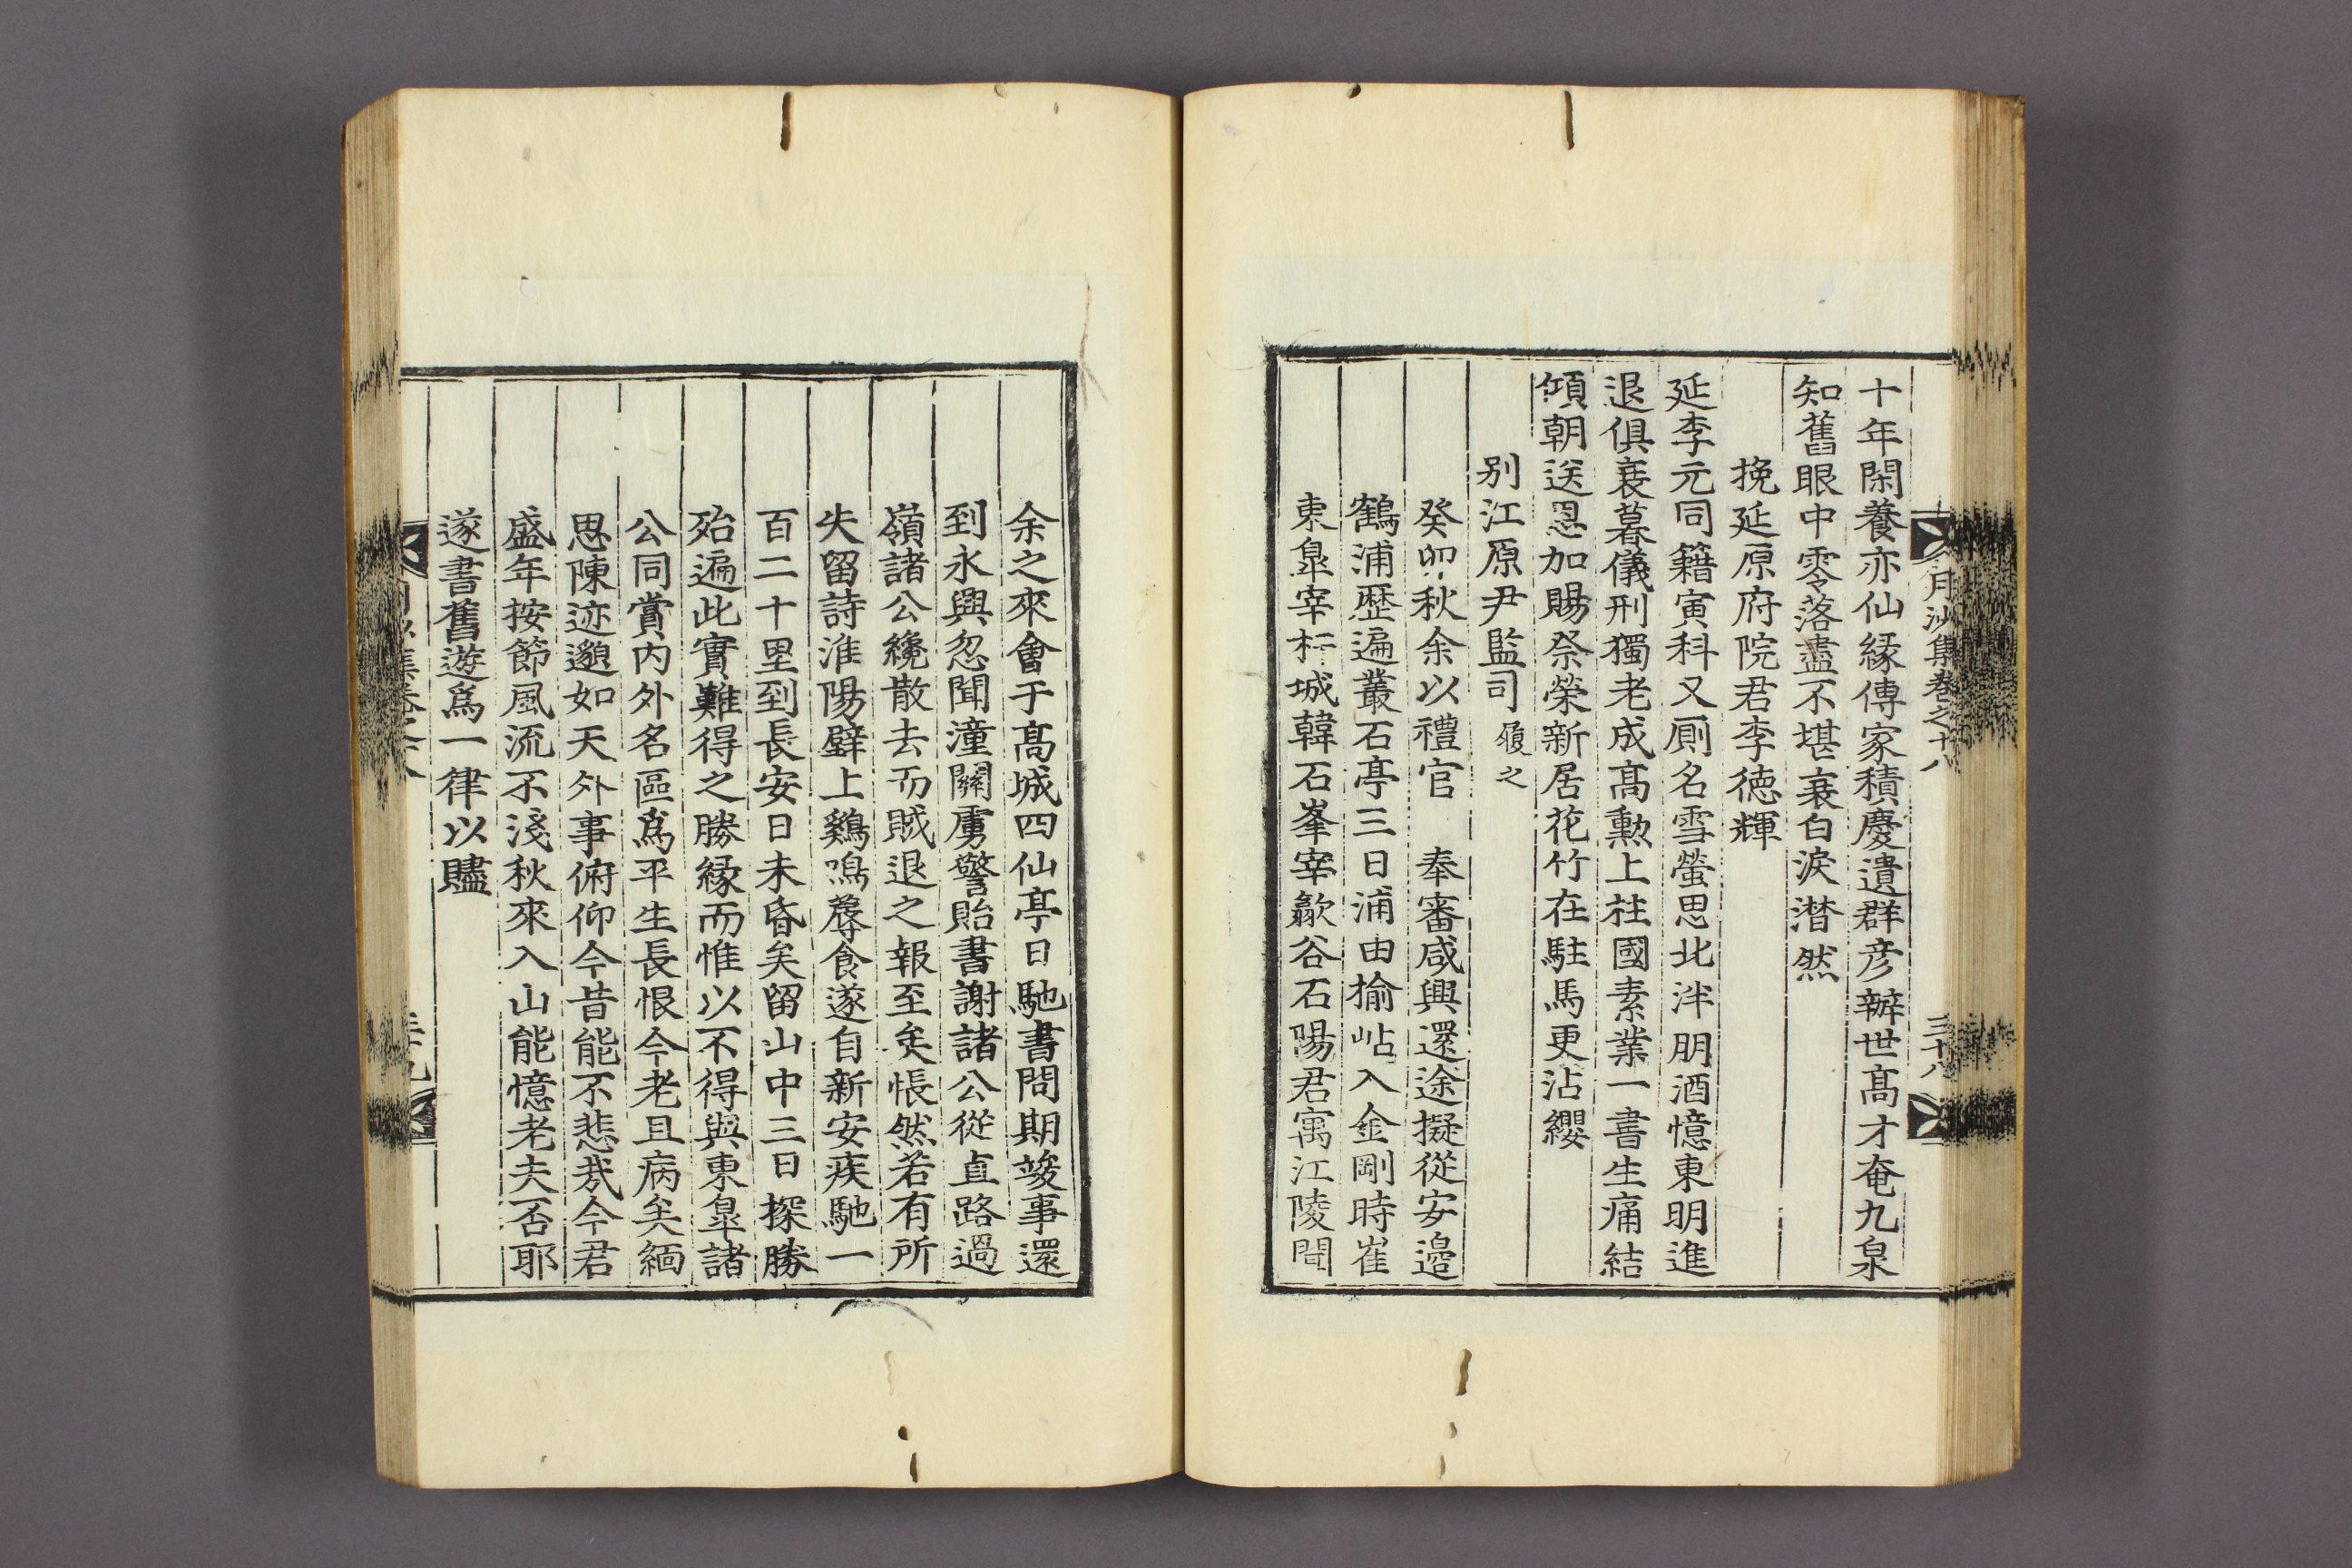 月沙集卷之十八
三十八
十年閑養亦仙緣傳家積慶遺群彦辦世高才奄九泉
知舊眼中零落盡不堪衰白淚潛然
挽延原府院君李德輝
延李元同籍寅科又厠名雪螢思北泮朋酒憶東明進
退俱衰暮儀刑獨老成高勲上柱國素業一書生痛結
傾朝送恩加賜祭榮新居花竹在駐馬更沾纓
別江原尹監司 履之
癸卯秋余以禮官 奉審咸興還途擬從安邉
鶴浦歴遍叢石亭三日浦由揄岾入金剛時崔
東皐宰杆城韓石峯宰歙谷石陽君寓江陵聞
余之來會于髙城四仙亭日馳書問期竣事還
到永興忽聞潼關虜警貽書謝諸公從直路過
嶺諸公纔散去而賊退之報至矣悵然若有所
失留詩淮陽壁上鷄鳴蓐食遂自新安疾馳一
百二十里到長安日未昏矣留山中三日探勝
殆遍此實難得之勝緣而惟以不得與東皐諸
公同賞內外名區爲平生長恨今老且病矣緬
思陳迹邈如天外事俯仰今昔能不悲哉今君
盛年按節風流不淺秋來入山能憶老夫否耶
遂書舊遊爲一律以贐